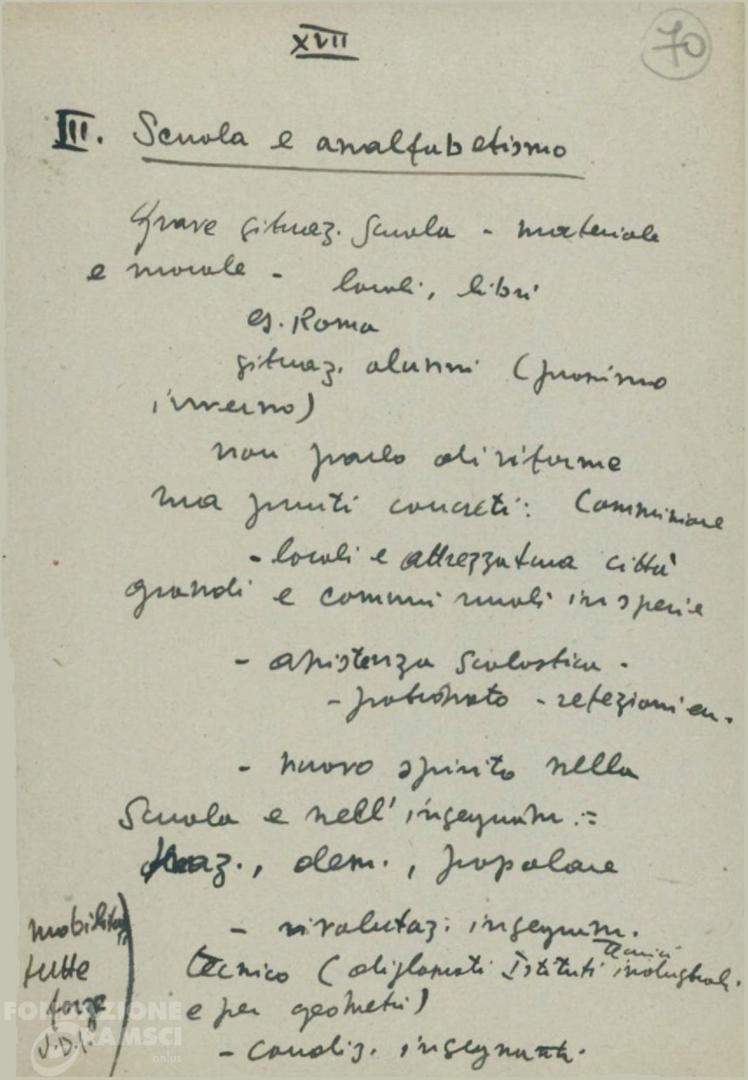 XVII
70
III. Scuola e analfabetismo
Grave situaz. scuola - materiale
e morale - locali, libri
es. Roma
situaz. alunni (prossimo
inverno)
non parlo di riforme
ma punti concreti: Commissione
- locali e attrezzatura città
grandi e comuni rurali in specie
- assistenza scolastica -
- patronato - refezioni ecc.
- nuovo spirito nella
Scuola e nell'insegnam. =
naz., dem., popolare
- rivalutaz. insegnam.
tecnico (diplomati Istituti tecnici industriali.
e per geometri)
- condiz. insegnanti.
mobilitaz
tutte
forze
U.D.I.
FONDAZIONE
GRAMSCI
onlus